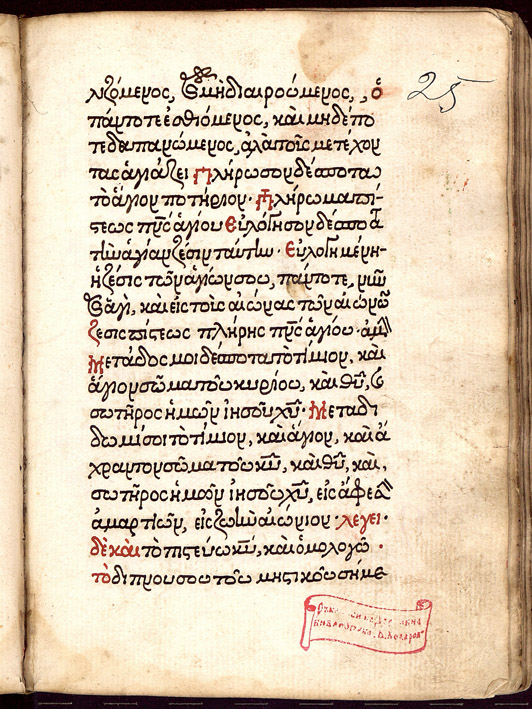 λιζόμενος, ϗ μὴ διαιροώμενος, ὁ
25
πάντοτε ἐσθιόμενος, καὶ μηδέπο
τε δαπανώμενος, ἀλὰ τοῖς μετέχον
τας ἁγιάζει Πλήρωσον δέσποτα
τὸ ἅγιον ποτήριον· Πλήρωμα πί
στεως πνς ἁγίου Εὐλόγησον δέσποτα
τὴν ἁγίαν ζέσιν ταύτην· Εὐλογημένη
ἡ ζέσις τῶν ἁγίων σου, πάντοτε, νῦν
ϗ ἀεὶ, καὶ εἰς τοῖς αἰώνας τῶν αἰώνων
ζέσις πίστεως πλήρης πνς ἁγίου· ἀμ
Μετάδος μοι δέσποτα τὸ τίμιον, καὶ
ἅγιον σῶμα τοῦ κυρίου, καὶ θῦ, ϗ
σωτῆρος ἡμῶν ἰησοῦ χῦ· Μεταδί
δωμί σοι τὸ τίμιον, καὶ ἅγιον, καὶ ἄ
χραντον σῶμα τοῦ κῦ, καὶ θῦ, καὶ
σωτῆρος ἡμῶν ἰησοῦ χῦ, εἰς ἄφεσ
ἁμαρτιῶν, εἰς ζωὴν αἰώνιον· λέγει·
δὲ καὶ τὸ πιστεύω κε, καὶ ὁμολογῶ·
τὸ δίπνου σου τοῦ μηστικοῦ σήμε